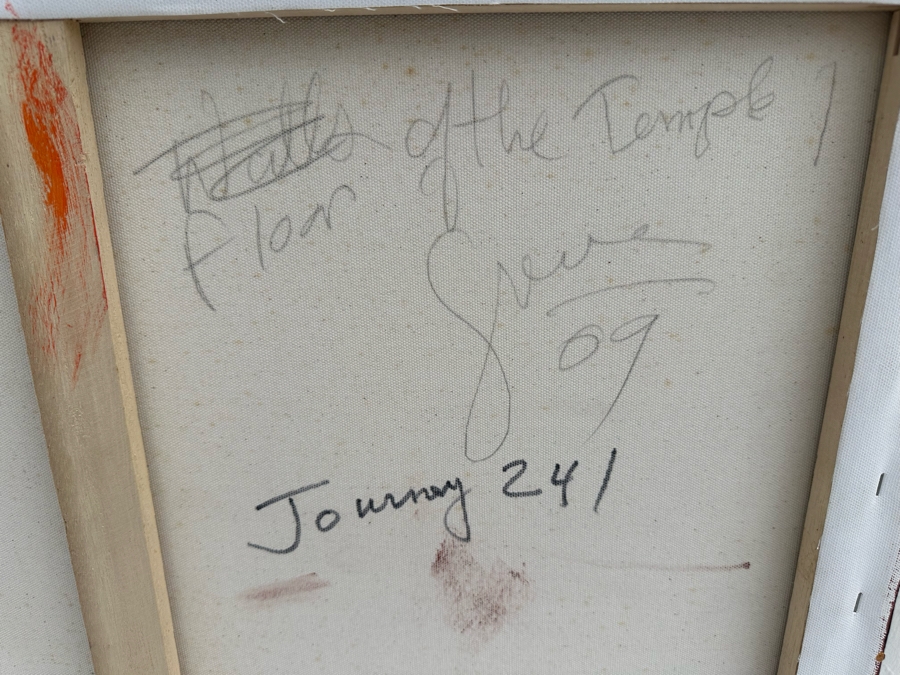 Walls of the Temple 1
Floor
09
Journey 241